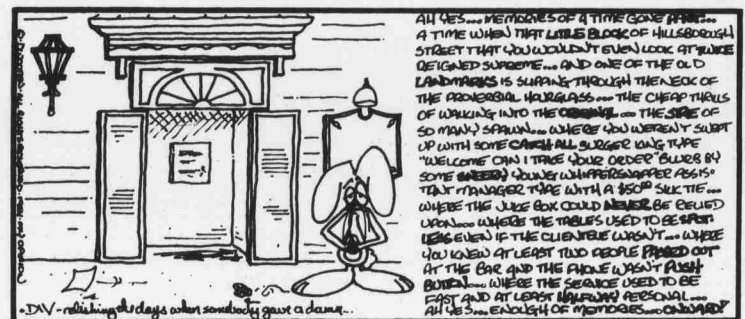 AH YES... MEMORIES OF A TIME GONE
A TIME WHEN THAT LITTLE BLOCK OF HILLSBOROUGH
STREET THAT YOU WOULDN'T EVEN LOOK AT TWICE
REIGNED SUPREME... AND ONE OF THE OLD
LANDMARKS IS SLIPPING THROUGH THE NECK OF
THE PROVERBIAL HOURGLASS... THE CHEAP THRILLS
OF WALKING INTO THE ORIGINAL... THE SIRE OF
SO MANY SPAWN... WHERE YOU WEREN'T SWEPT
UP WITH SOME CATCH ALL BURGER KING TYPE
"WELCOME CAN I TAKE YOUR ORDER" BLURB BY
SOME YOUNG WHIPPERSNAPPER ASSIS-
TANT MANAGER TYPE WITH A $50⁰⁰ SILK TIE...
WHERE THE JUKE BOX COULD NEVER BE RELIED
UPON... WHERE THE TABLES USED TO BE SPOT
LESS EVEN IF THE CLIENTELE WASN'T... WHERE
YOU KNEW AT LEAST TWO PEOPLE PASSED OUT
AT THE BAR AND THE PHONE WASN'T PUSH
BUTTON... WHERE THE SERVICE USED TO BE
FAST AND AT LEAST HALFWAY PERSONAL...
AH YES... ENOUGH OF MEMORIES... ONWARD!
•DIV-relishing the days when somebody gave a damn...